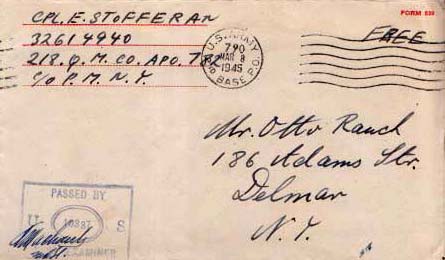 CPL. E. STOFFERAN
32614940
218. Q. M. CO. APO. 782
C/O P. M. N. Y.
FORM 539
FREE
U.S. ARMY
790
MAR 8
1945
BASE P.O.
Mr. Otto Rauch
186 Adams Str.
Delmar
N. Y.
PASSED BY
U S
EXAMINER